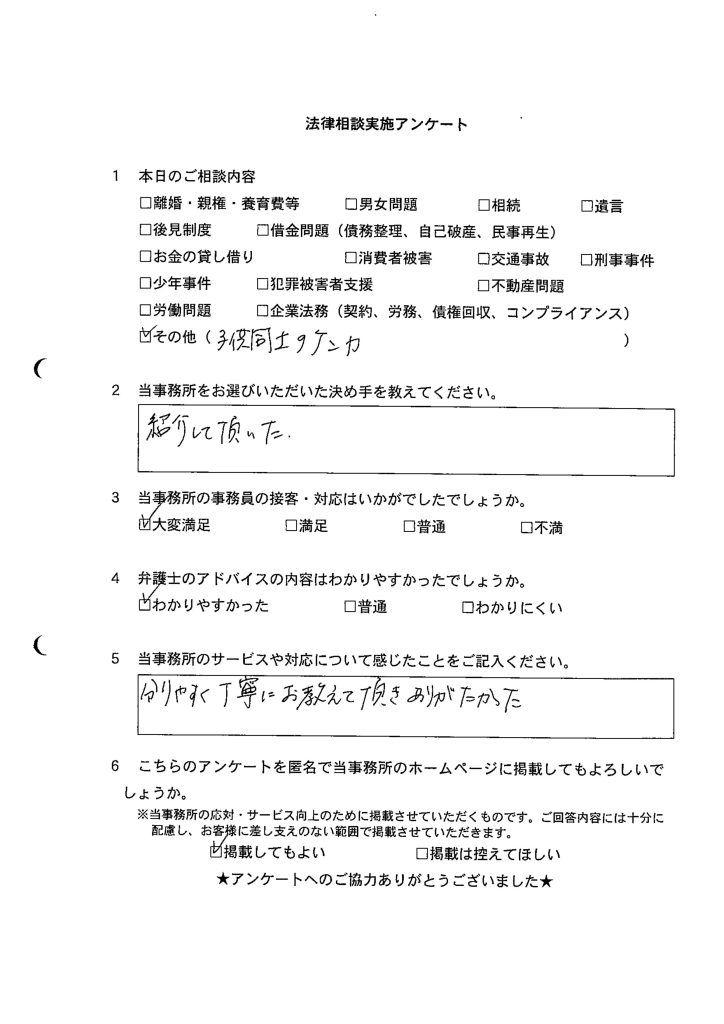 法律相談実施アンケート
1 本日のご相談内容
□離婚・親権・養育費等 □男女問題 □相続 □遺言
□後見制度 □借金問題（債務整理、自己破産、民事再生）
□お金の貸し借り □消費者被害 □交通事故 □刑事事件
□少年事件 □犯罪被害者支援 □不動産問題
□労働問題 □企業法務（契約、労務、債権回収、コンプライアンス）
☑その他（子供同士のケンカ ）
2 当事務所をお選びいただいた決め手を教えてください。
紹介して頂いた.
3 当事務所の事務員の接客・対応はいかがでしたでしょうか。
☑大変満足 □満足 □普通 □不満
4 弁護士のアドバイスの内容はわかりやすかったでしょうか。
☑わかりやすかった □普通 □わかりにくい
5 当事務所のサービスや対応について感じたことをご記入ください。
分りやすく丁寧にお教えて頂きありがたかった
6 こちらのアンケートを匿名で当事務所のホームページに掲載してもよろしいで
しょうか。
※当事務所の応対・サービス向上のために掲載させていただくものです。ご回答内容には十分に
配慮し、お客様に差し支えのない範囲で掲載させていただきます。
☑掲載してもよい □掲載は控えてほしい
★アンケートへのご協力ありがとうございました★